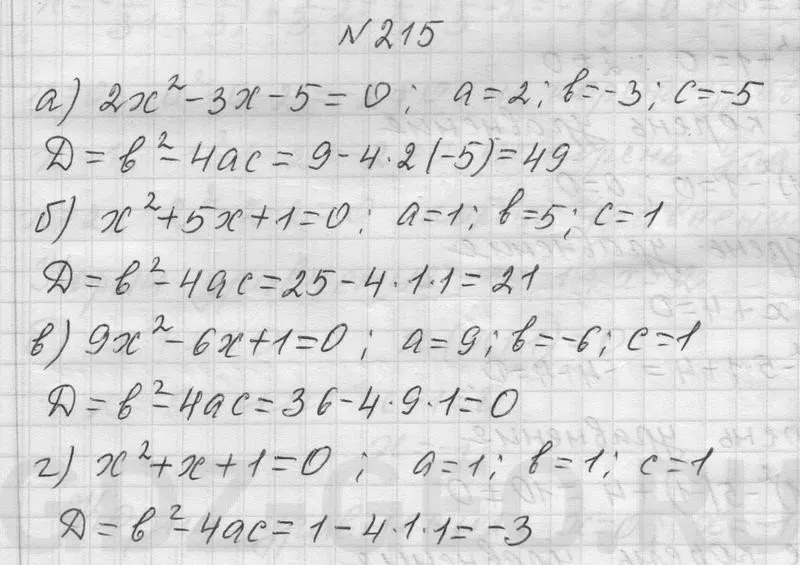 N215
а) 2x²-3x-5=0; a=2; b=-3; c=-5
Д=b²-4ac=9-4·2(-5)=49
б) x²+5x+1=0; a=1; b=5; c=1
Д=b²-4ac=25-4·1·1=21
в) 9x²-6x+1=0; a=9; b=-6; c=1
Д=b²-4ac=36-4·9·1=0
г) x²+x+1=0; a=1; b=1; c=1
Д=b²-4ac=1-4·1·1=-3